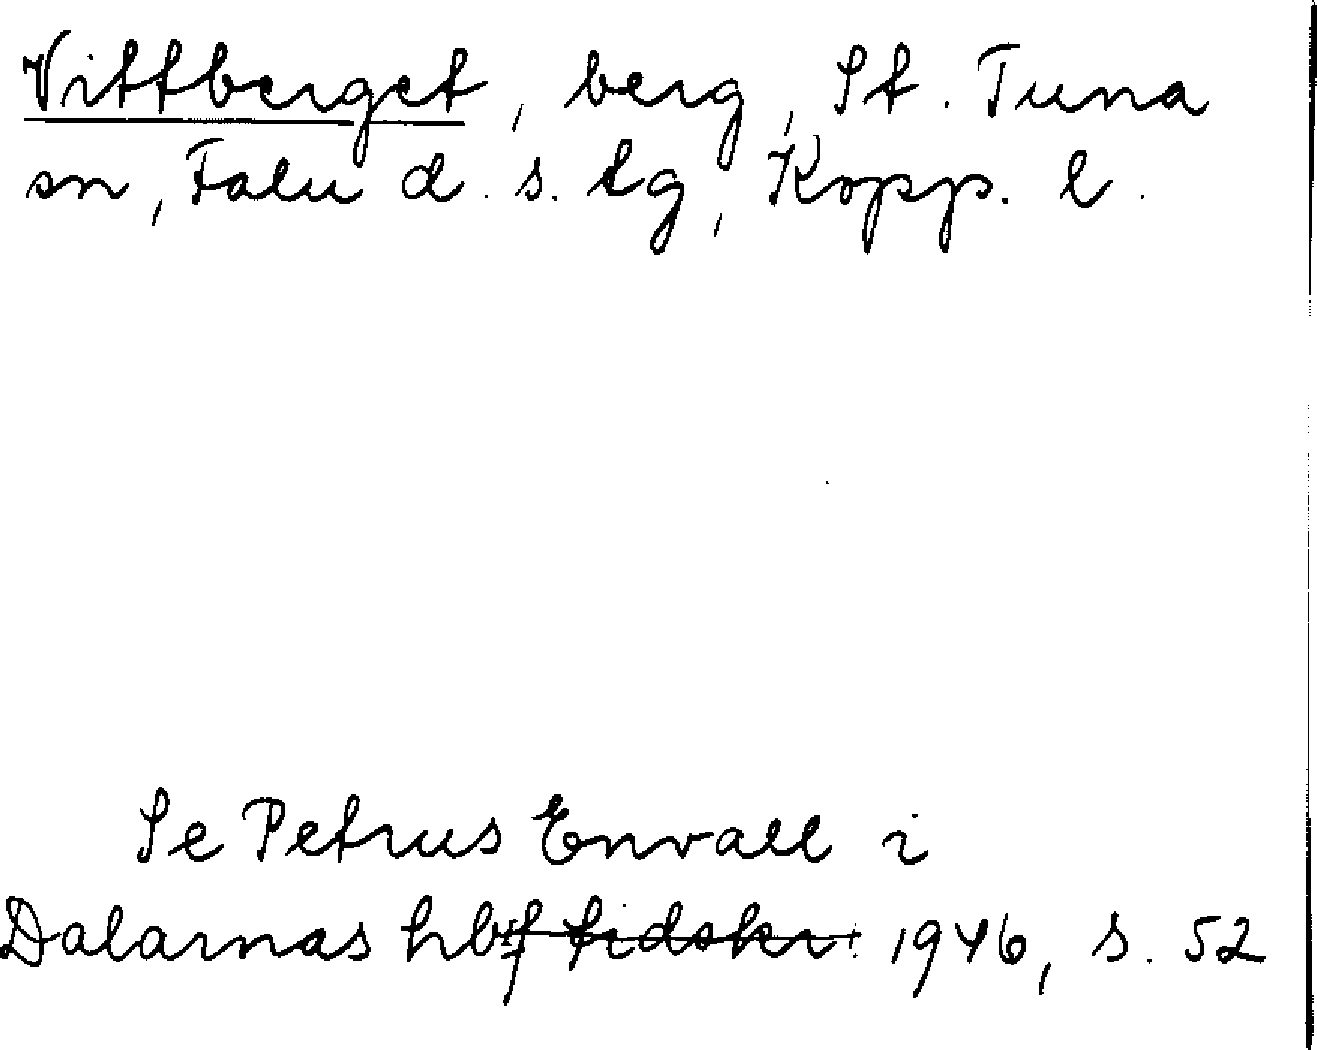 Vittberget, berg, St. Tuna
sn, Falu d. s. tg, Kopp. l.
Se Petrus Envall i
Dalarnas hbf tidskr. 1946, s. 52